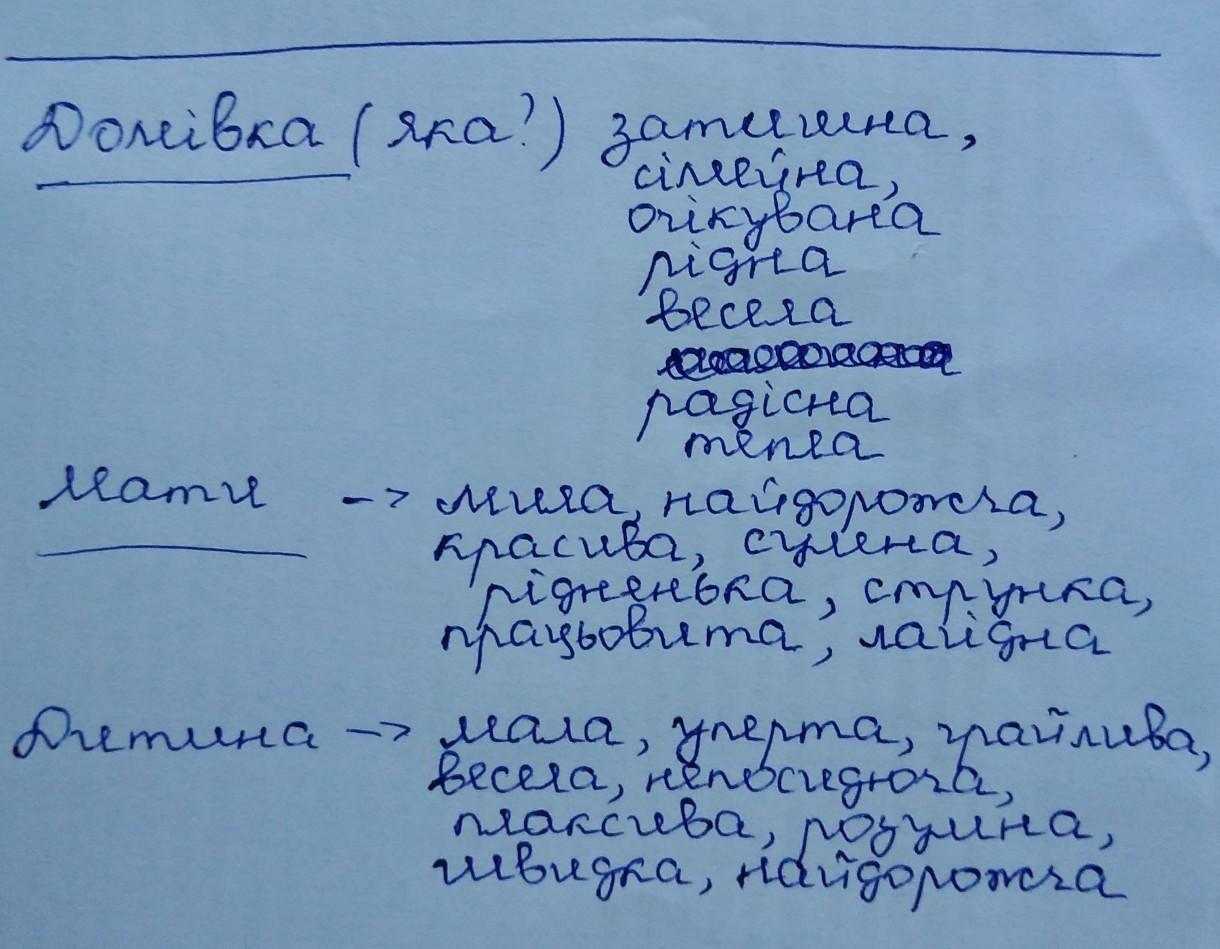 Домівка (яка?) затишна,
сімейна,
очікувана
рідна
весела
радісна
тепла
Мати -> мила, найдорожча,
красива, сумна,
рідненька, струнка,
працьовита, лагідна
Дитина -> мала, уперта, грайлива,
весела, непосидюча,
плаксива, розумна,
швидка, найдорожча